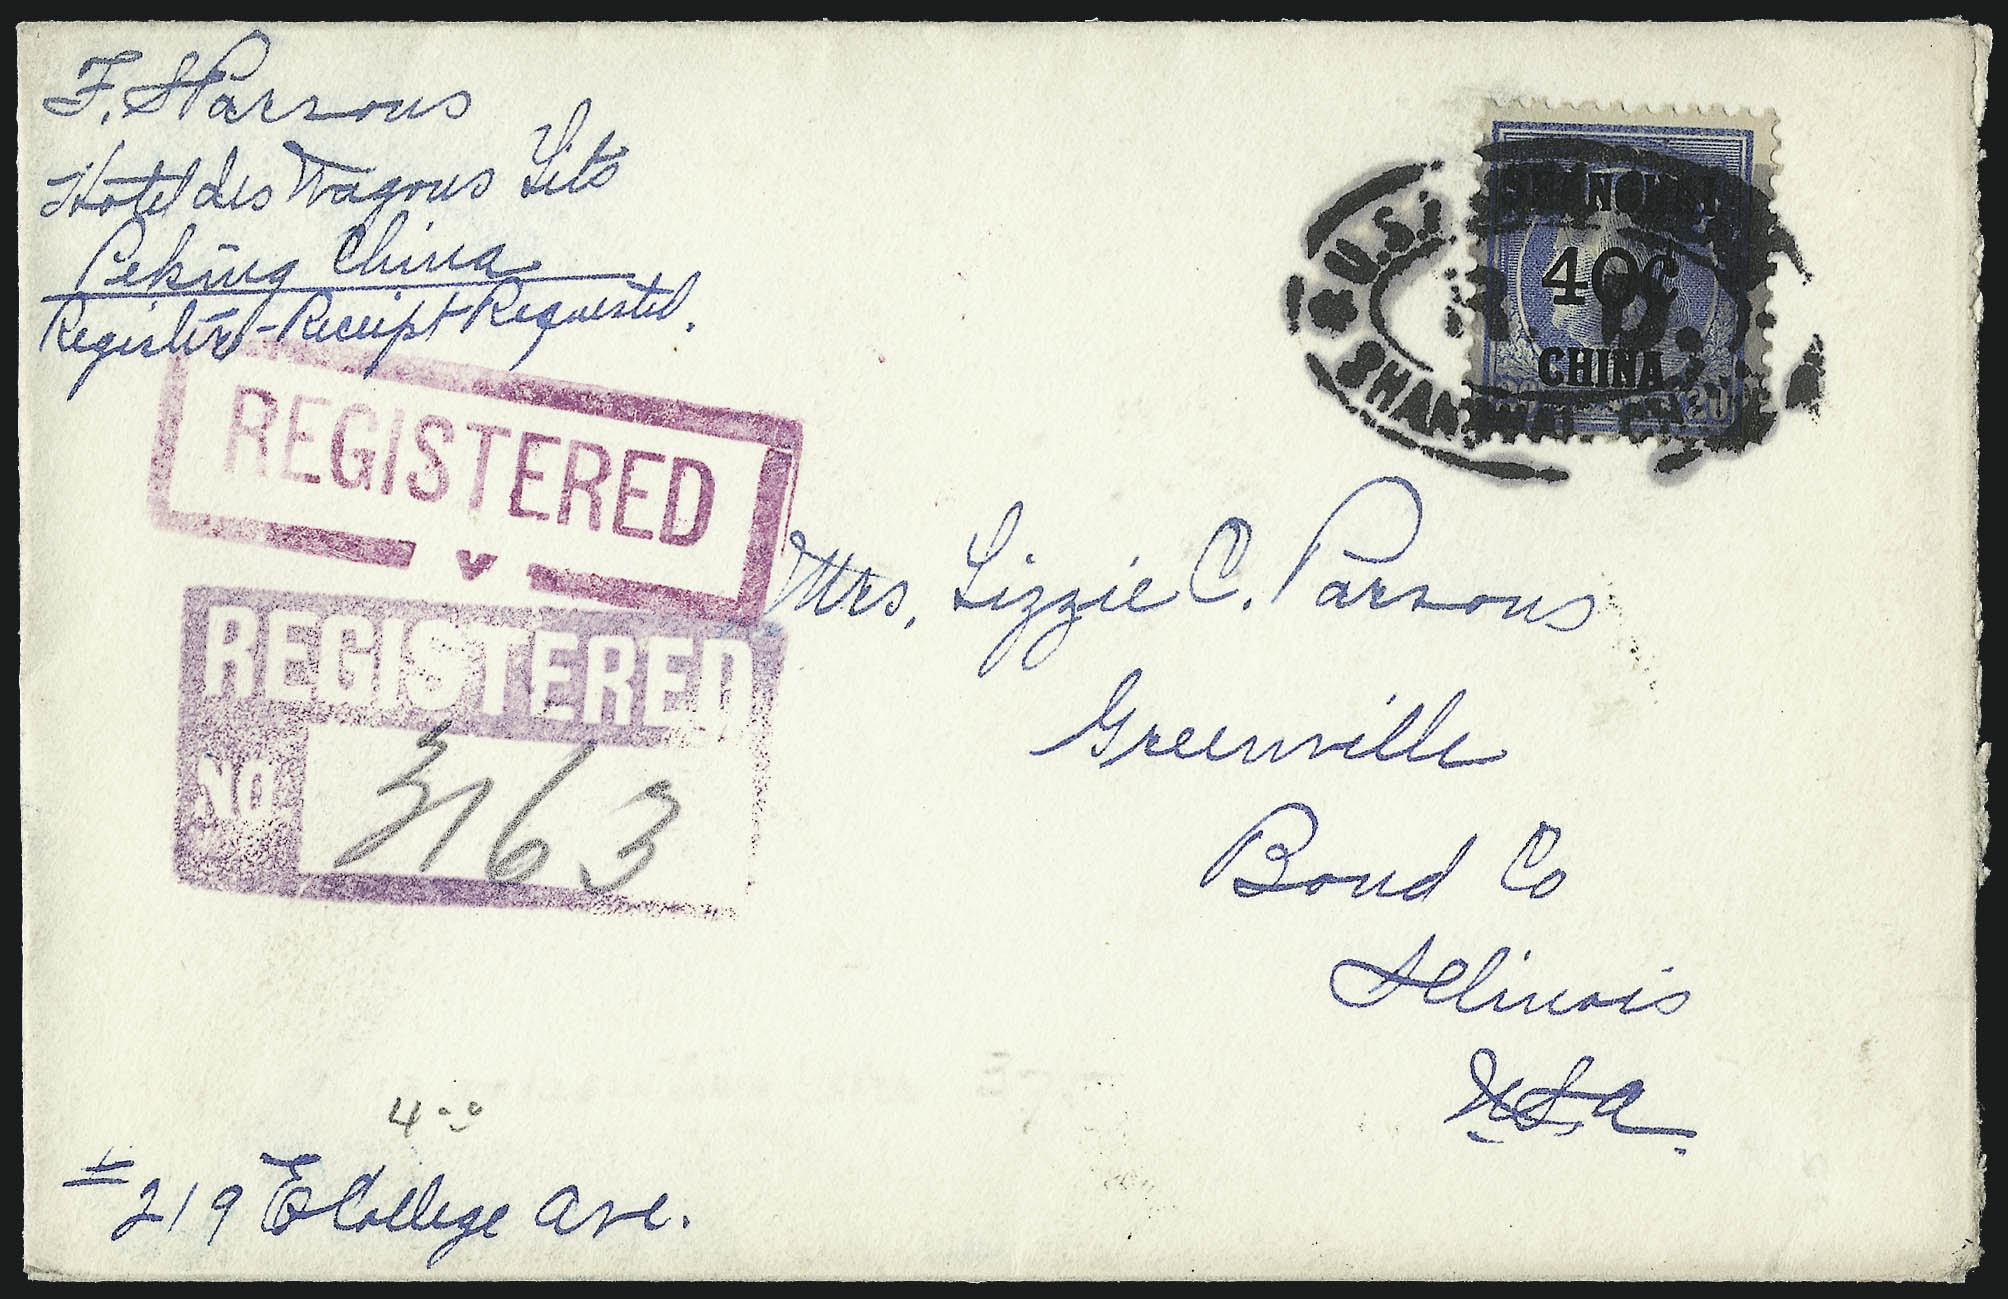 F. S Parsons
Hotel des Wagons Lits
Peking China
Register - Receipt Requested.
SHANGHAI
40¢
CHINA
U.S.
R. D.
SHANGHAI, CH
REGISTERED
REGISTERED
NO. 3163
Mrs. Lizzie C. Parsons
Greenville
Bond Co
Illinois
U.S.A.
# 219 E College Ave.